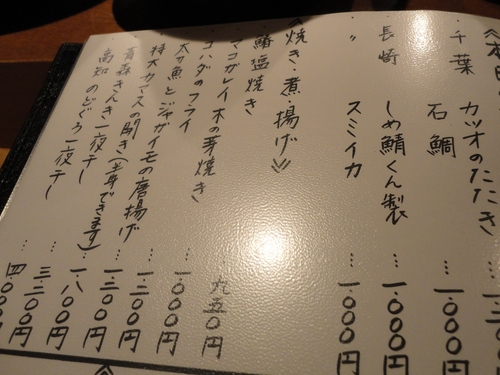 千葉 カツオのたたき … 一三〇
〃 石鯛 … 一〇〇〇円
長崎 しめ鯖くん製 … 一〇〇〇円
〃 スミイカ … 一〇〇〇円
《焼き・煮・揚げ》
鰆塩焼き
マコガレイ木の芽焼き
コハダのフライ … 九五〇円
太刀魚とジャガイモの唐揚げ … 一〇〇〇円
特大カマスの開き(半身できます) … 一二〇〇円
青森きんき一夜干し … 三二〇〇円
高知のどぐろ一夜干し … 四〇〇〇円